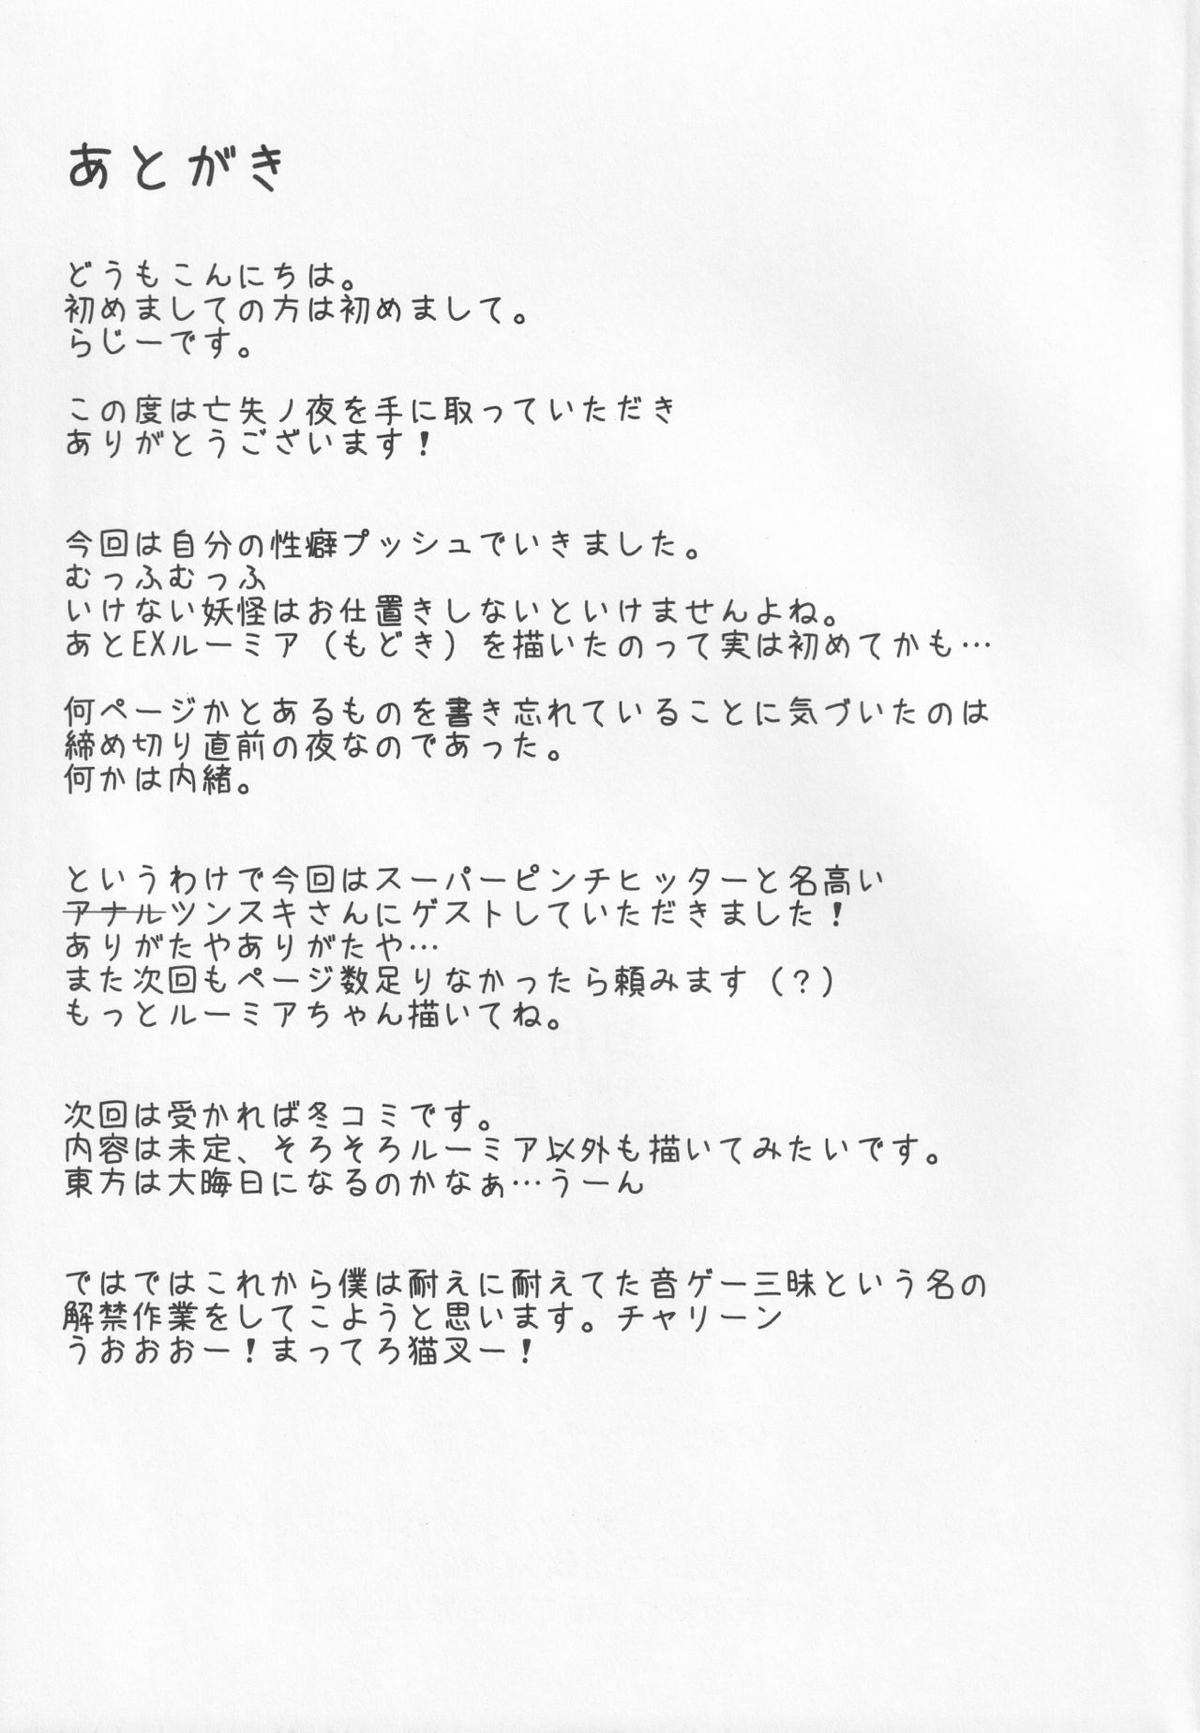 あとがき
どうもこんにちは。
初めましての方は初めまして。
らじーです。
この度は亡失ノ夜を手に取っていただき
ありがとうございます！
今回は自分の性癖プッシュでいきました。
むっふむっふ
いけない妖怪はお仕置きしないといけませんよね。
あとEXルーミア（もどき）を描いたのって実は初めてかも…
何ページかとあるものを書き忘れていることに気づいたのは
締め切り直前の夜なのであった。
何かは内緒。
というわけで今回はスーパーピンチヒッターと名高い
アナルツンスキさんにゲストしていただきました！
ありがたやありがたや…
また次回もページ数足りなかったら頼みます（？）
もっとルーミアちゃん描いてね。
次回は受かれば冬コミです。
内容は未定、そろそろルーミア以外も描いてみたいです。
東方は大晦日になるのかなぁ…うーん
ではではこれから僕は耐えに耐えてた音ゲー三昧という名の
解禁作業をしてこようと思います。チャリーン
うおおおー！まってろ猫叉ー！